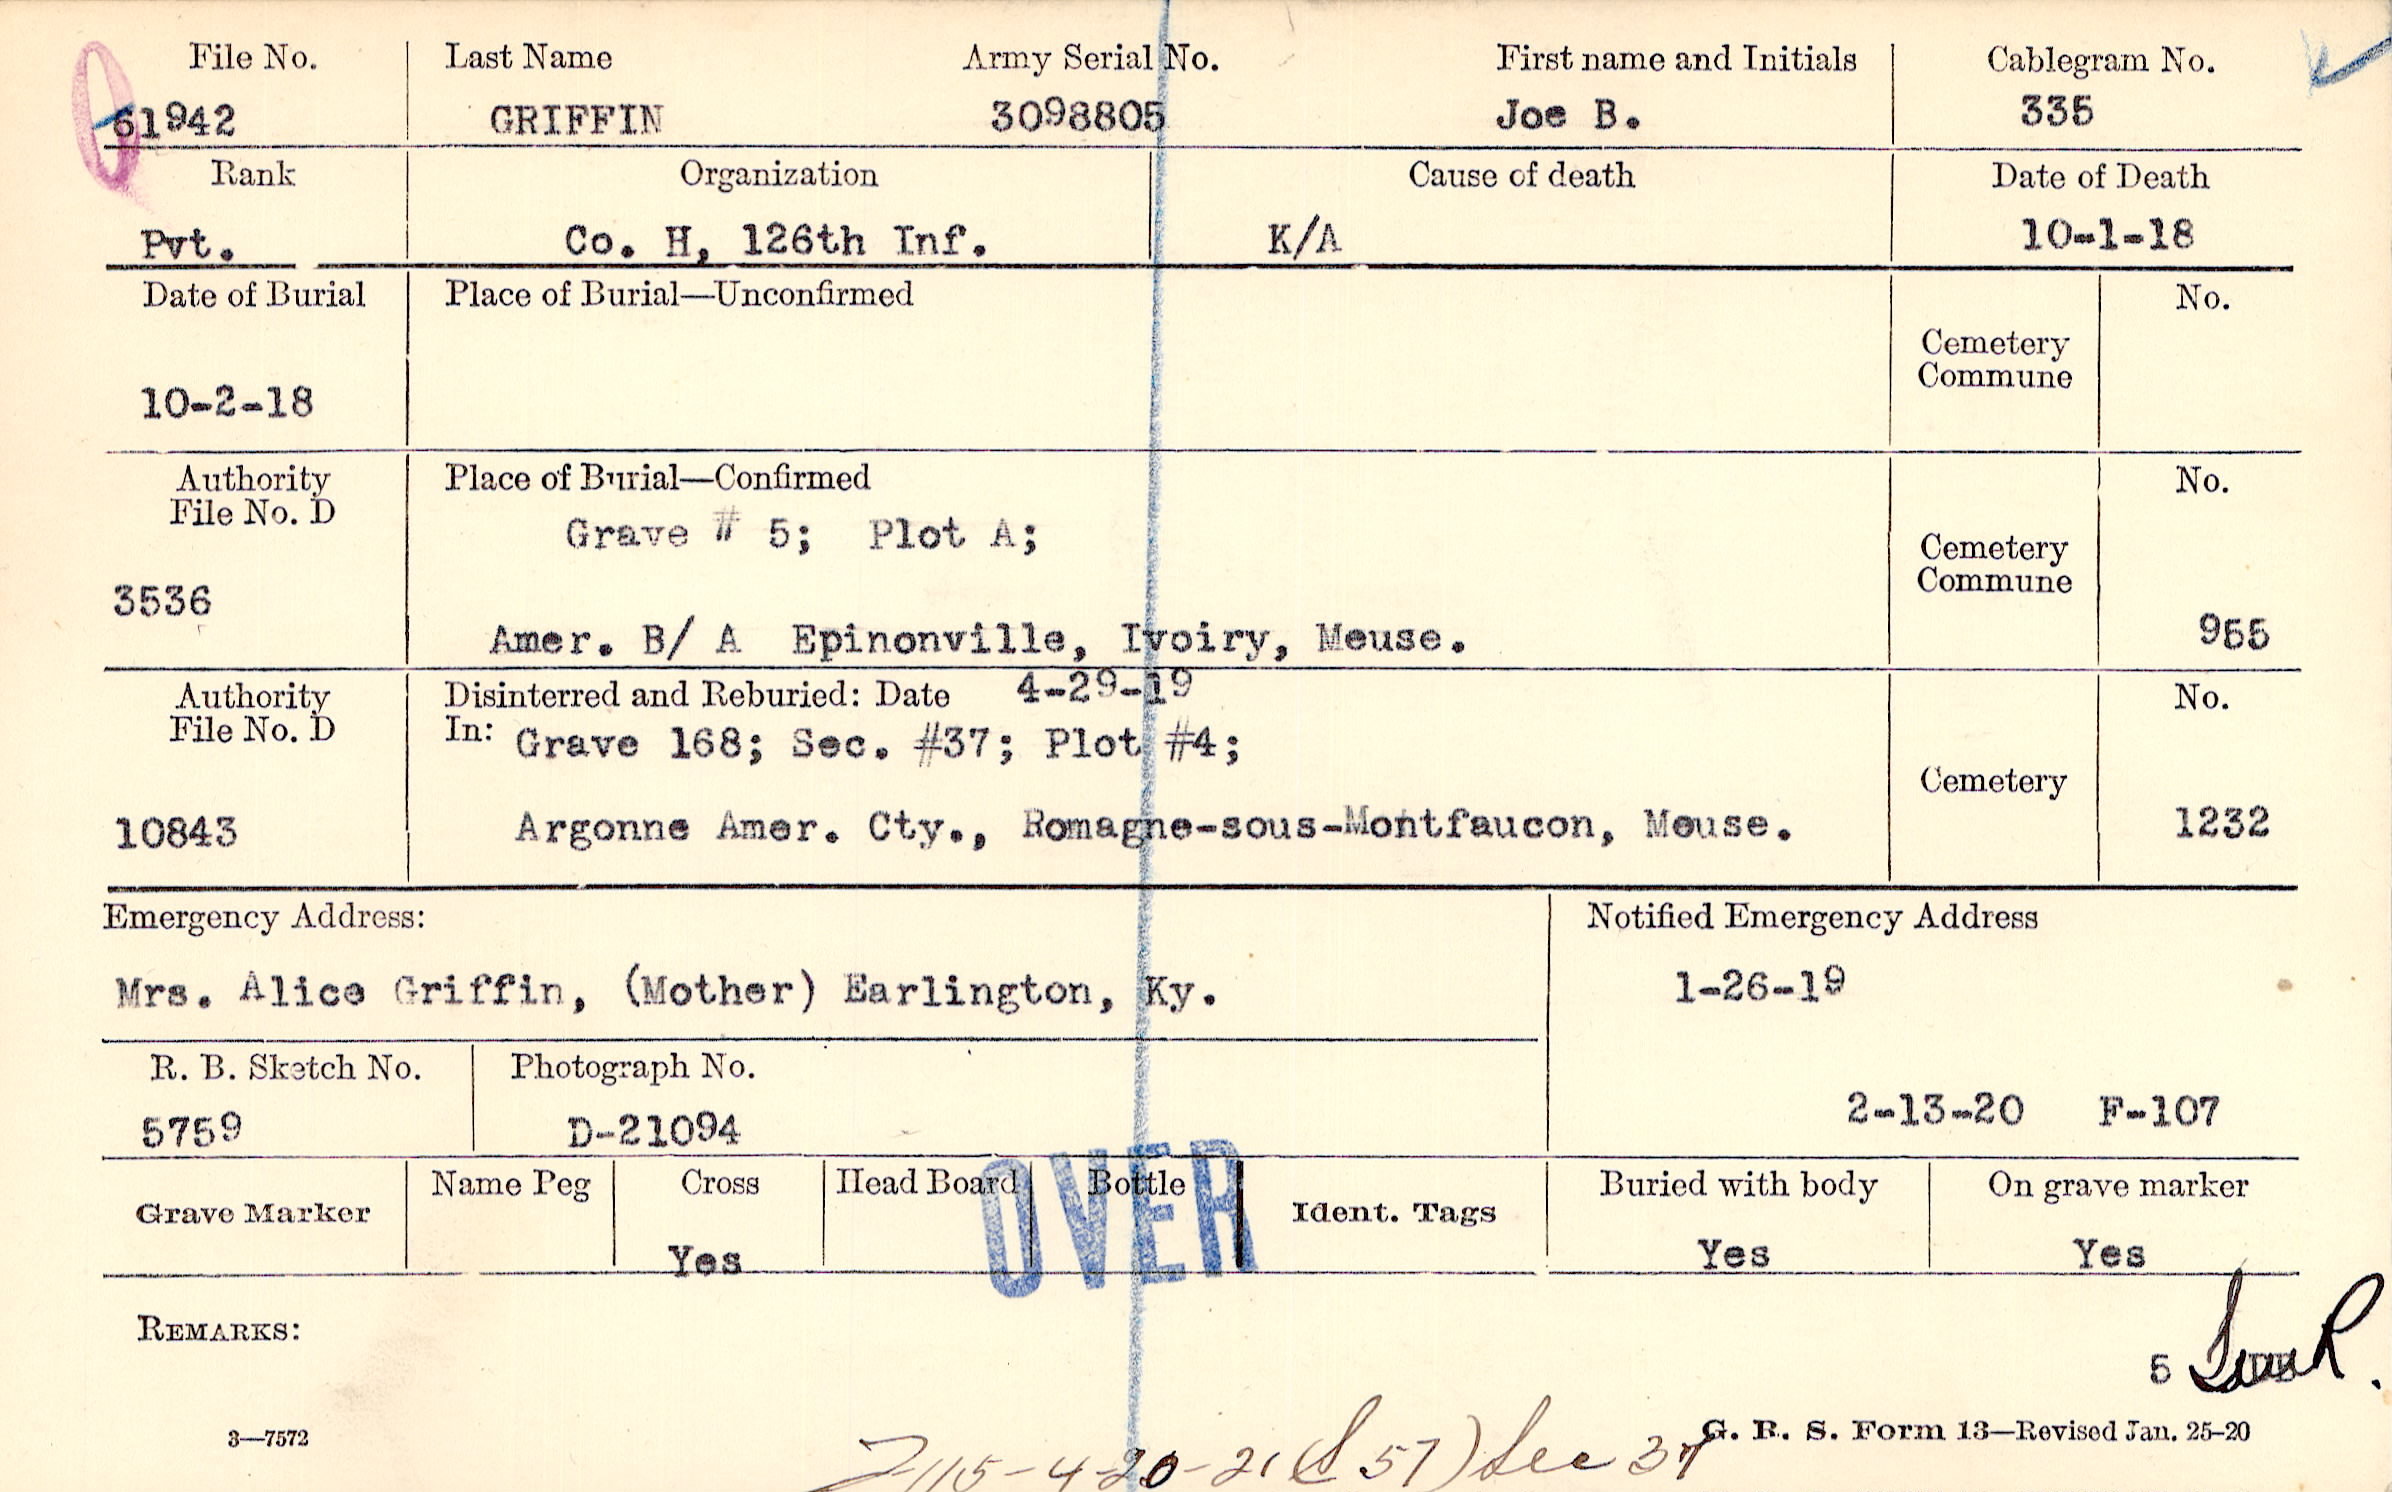 File No. Last Name Army Serial No. First name and Initials Cablegram No.
61942 GRIFFIN 3098805 Joe B. 335
Rank Organization Cause of death Date of Death
Pvt. Co. H, 126th Inf. K/A 10-1-18
Date of Burial Place of Burial—Unconfirmed No.
Cemetery
Commune
10-2-18
Authority Place of Burial—Confirmed No.
File No. D
Grave # 5; Plot A;
Cemetery
Commune
3536
Amer. B/ A Epinonville, Ivoiry, Meuse. 955
Authority Disinterred and Reburied: Date 4-29-19 No.
File No. D In: Grave 168; Sec. #37; Plot #4;
Cemetery
10843 Argonne Amer. Cty., Romagne-sous-Montfaucon, Meuse. 1232
Emergency Address: Notified Emergency Address
Mrs. Alice Griffin, (Mother) Earlington, Ky. 1-26-19
R. B. Sketch No. Photograph No.
5759 D-21094 2-13-20 F-107
Grave Marker Name Peg Cross Head Board Bottle Ident. Tags Buried with body On grave marker
Yes Yes Yes
OVER
REMARKS:
5
3—7572 G. R. S. Form 13—Revised Jan. 25-20
-4-20-21 (S 57) Sec 37